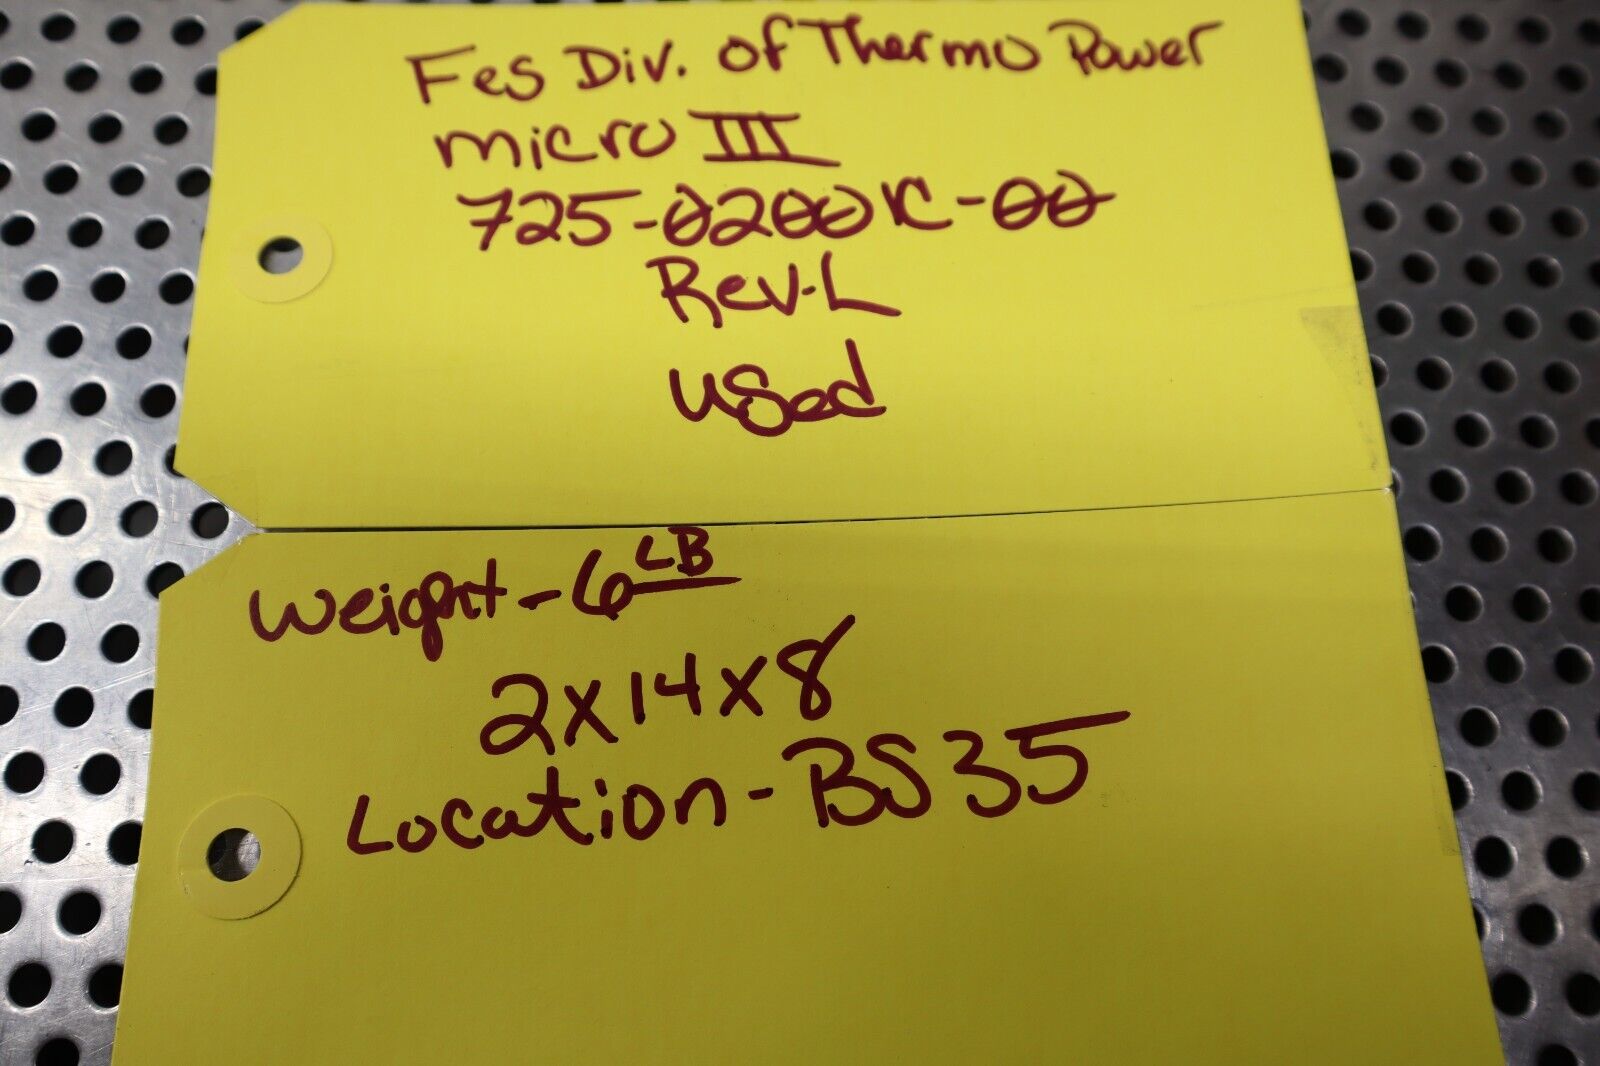 Fes Div. of Thermo Power
micro III
725-0200K-00
Rev-L
used
Weight-6LB
2x14x8
Location-BS35